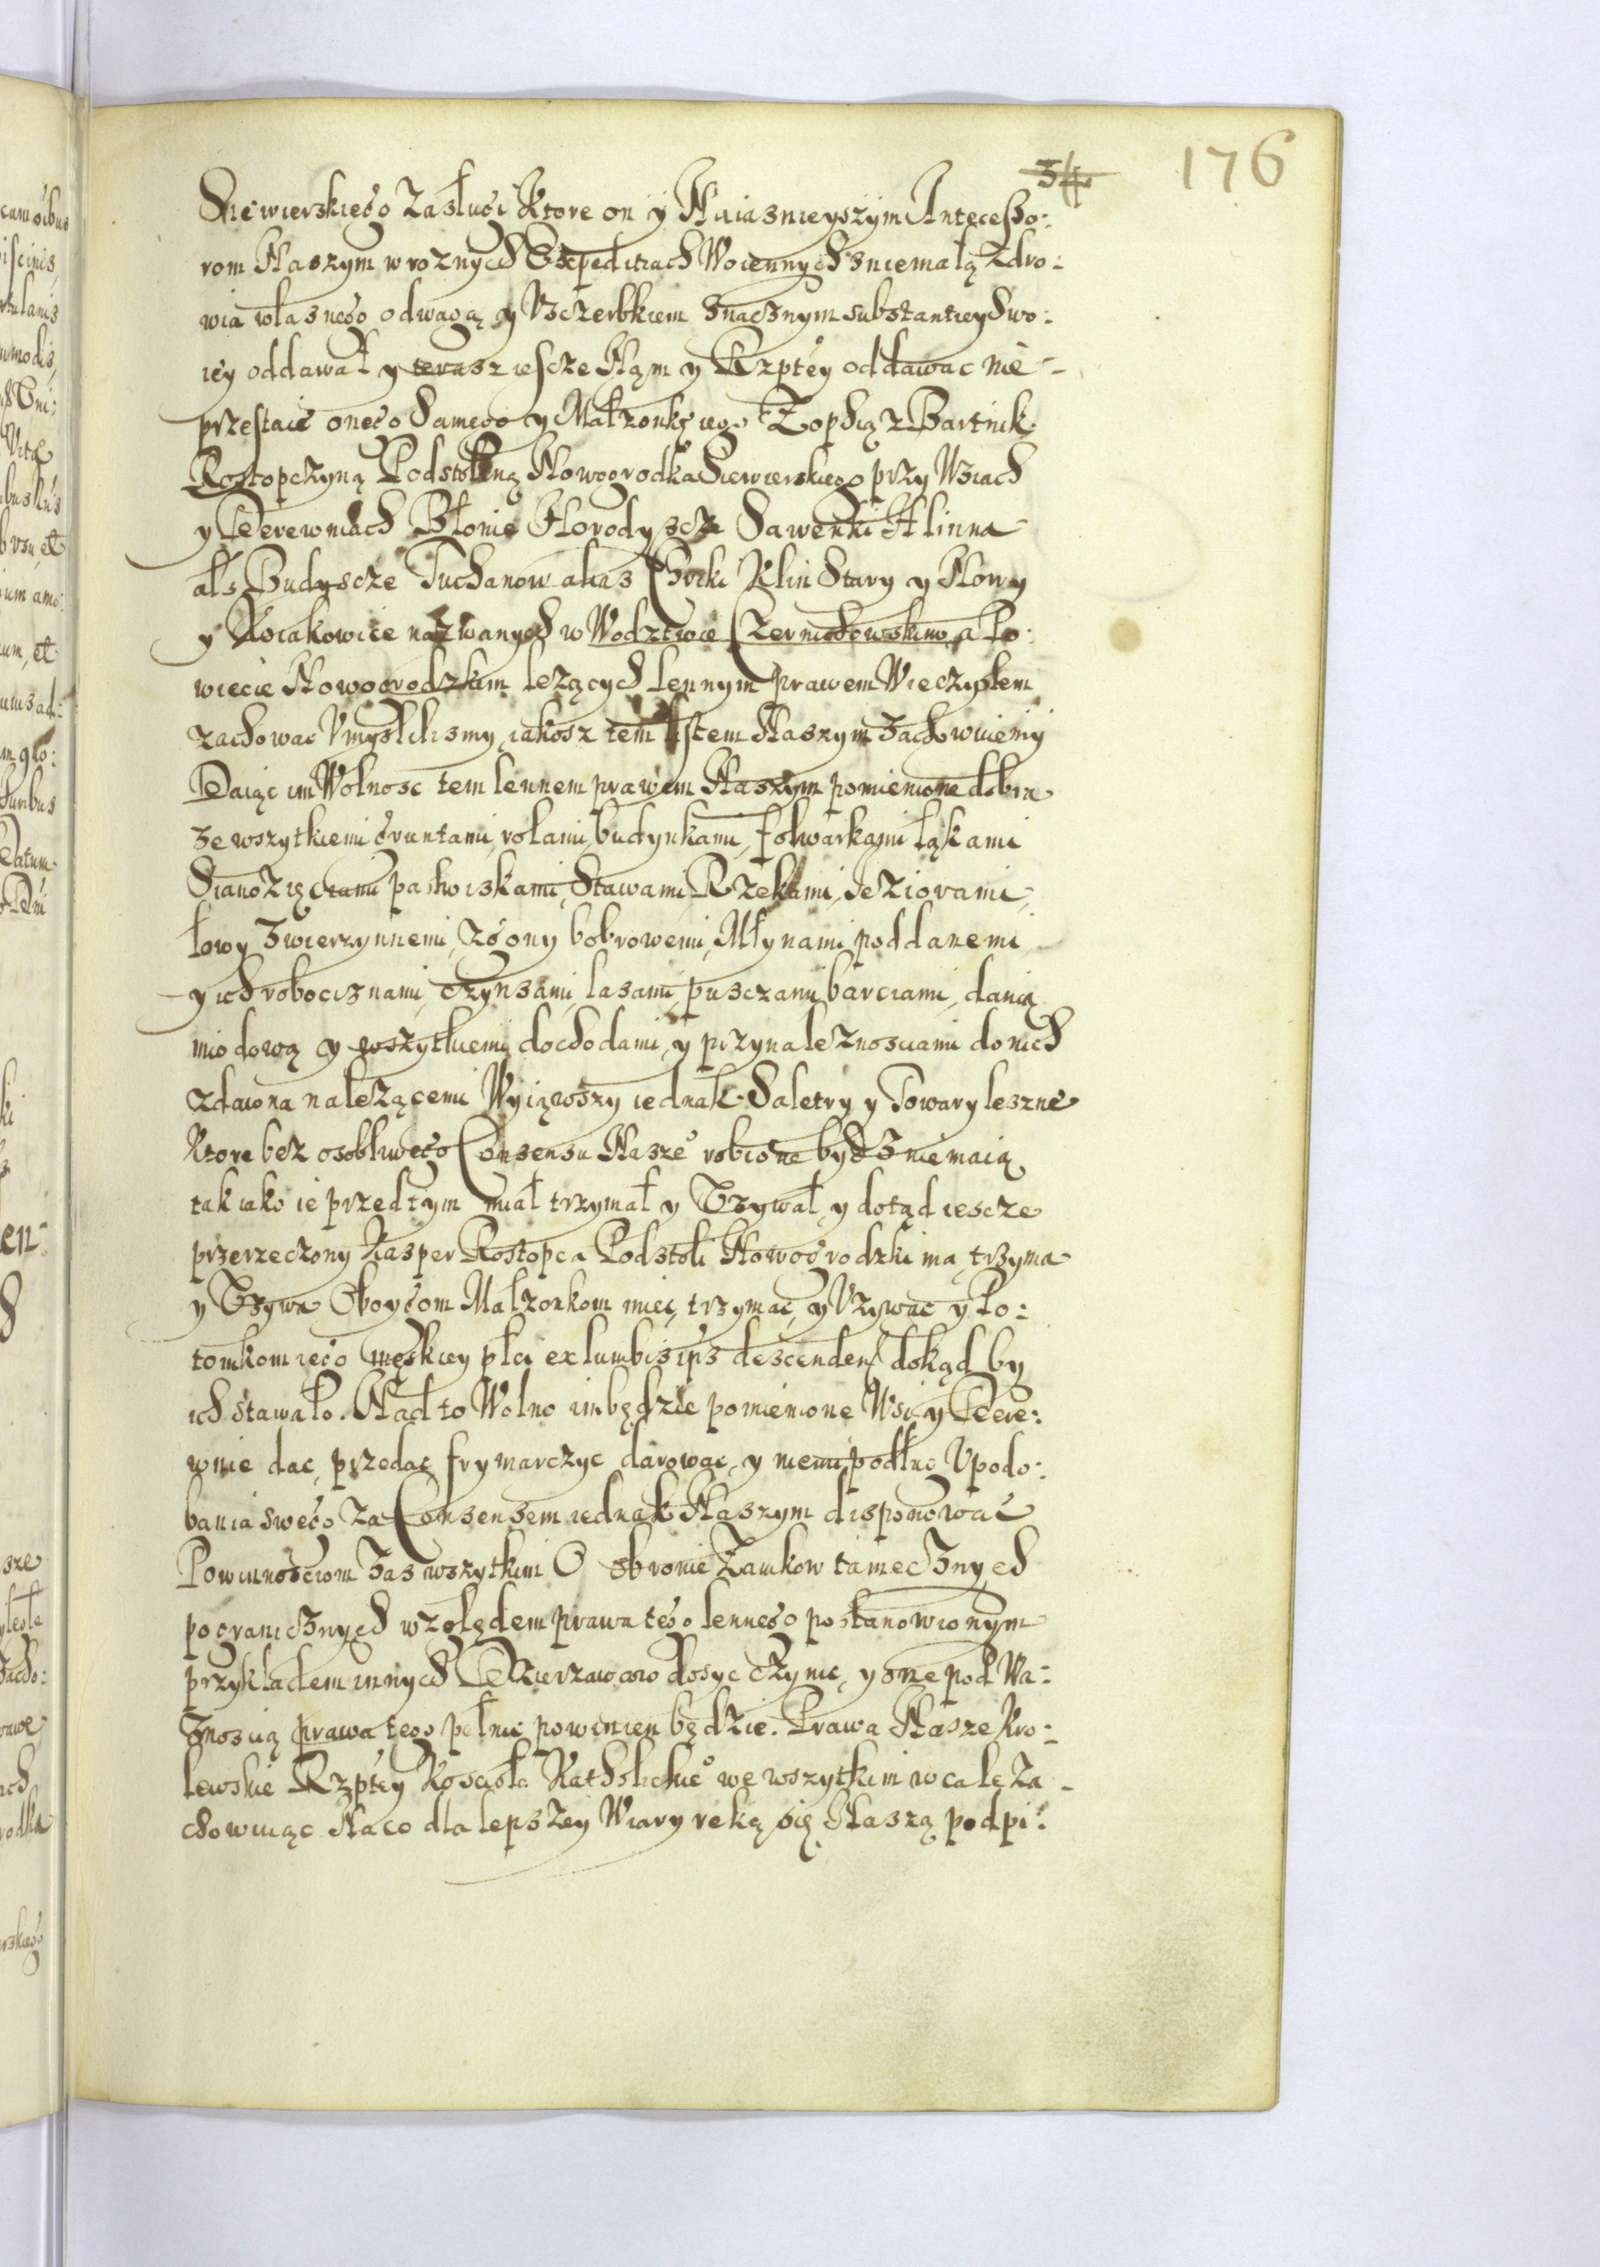 34 176
Siewierskiego zasługi ktore on y Naiasnieyszym Antecesso:
rom Naszym w roznych Expeditiach Woiennych z niemałą zdro:
wia własnego odwagą y Vsczerbkiem znacznym substantiey swo:
iey oddawał y terasz iescze Nąm y Rzptey oddawac nie
przestaie onego samego y Małzonkę iego Zophią z Bartnik
Rostopczyną Podstoliną Nowogrodka Siewierskiego przy Wsiach
y Derewniach Błonie Horodyscze Sawenki Hlinna
als Budyscze Tuchanow alias Klin Stary y Nowy
y nazwanych w Wodztwie Czernichowskim a Po:
wiecie Nowogrodzkim lezących lennym prawem Wieczystem
zachowac Vmyslilismy, iakosz tem listem Naszym zachowuiemy
Daiąc im Wolnosc tem lennem prawem Naszym pomienione dobra
ze wszytkiemi gruntami, rolami, budynkami, folwarkami łąkami
Sianozięciami pastwiskami, Stawami Rzekami, Ieziorami,
łowy zwierzynnemi, zgony bobrowemi, Młynami, poddanemi
y ich robociznami, czynszami, lasami, pusczami, barciami, danią
miodową y wszytkiemi dochodami, y przynaleznosciami do nich
zdawna nalezącemi Wyiąwszy iednak Saletry y Towary leszne
Ktore bez osobliwego Consensu Nasze° robione bydz nie maią
tak iako ie przedtym miał trzymał y Vzywał, y dotąd iescze
przerzeczony Kasper Rostopca Podstoli Nowogrodzki ma, trzyma
y Vzywa Oboygom Małzonkom miec, trzymac, y Vzywac y Po:
tomkom iego męskiey płci ex lumbis ips descenden dokąd by
ich stawało. Nad to Wolno im będzie pomienione Wsi y Dere:
wnie dac, przedac frymarczyc darowac, y niemi podług Vpodo:
bania swego za Consensem iednak Naszym disponowac
Powinnosciom zas wszytkim O obronie Zamkow tamecznych
pogranicznych względem prawa tego lennego postanowionym
przykładem innych Dzierzawcow dosyc czynic, y one pod Wa:
znoscią prawa tego pełnic powinien będzie. Prawa Nasze Kro:
lewskie Rzptey Koscioła Katholickie° we wszytkim w cale za
chowuiąc Na co dla lepszey Wiary ręką się Naszą podpi: